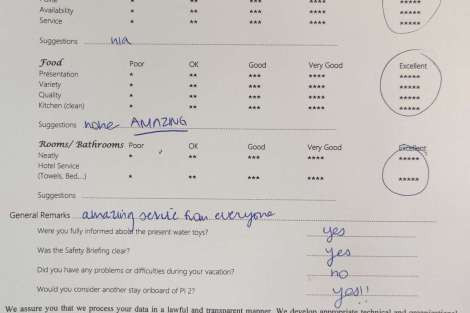 Availability * ** *** **** *****
Service * ** *** **** *****
Suggestions n/a
Food Poor OK Good Very Good Excellent
Presentation * ** *** **** *****
Variety * ** *** **** *****
Quality * ** *** **** *****
Kitchen (clean) * ** *** **** *****
Suggestions none AMAZING
Rooms/ Bathrooms Poor OK Good Very Good Excellent
Neatly * ** *** **** *****
Hotel Service
(Towels, Bed,...) * ** *** **** *****
Suggestions
General Remarks amazing servic from everyone
Were you fully informed about the present water toys? yes
Was the Safety Briefing clear? yes
Did you have any problems or difficulties during your vacation? no
Would you consider another stay onboard of PI 2? yes!!
We assure you that we process your data in a lawful and transparent manner. We develop appropriate technical and organizational